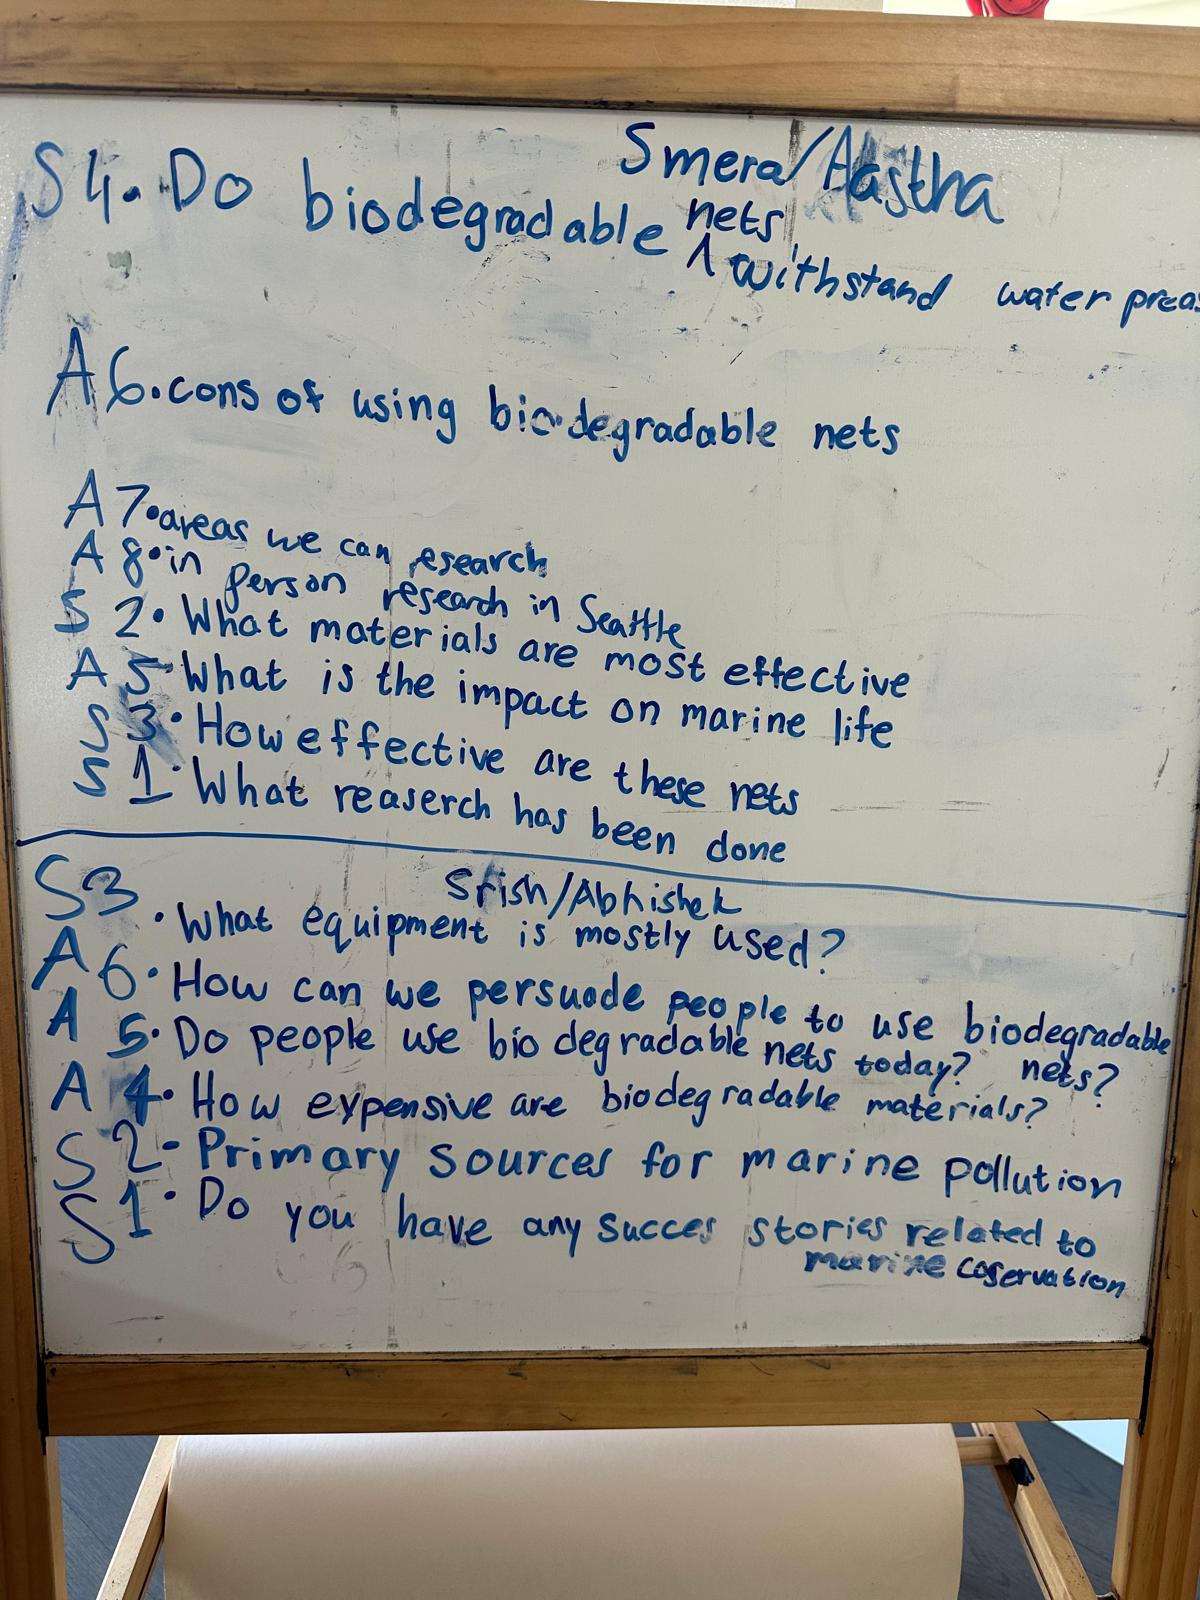 Smera/Aastha
S 4. Do biodegradable nets
^ withstand water preas
A 6. cons of using biodegradable nets
A 7. areas we can esearch
A 8. in person research in Seattle
S 2. What materials are most effective
A 5. What is the impact on marine life
S 3. How effective are these nets
S 1. What reaserch has been done
Srish/Abhishek
S3 . What equipment is mostly used?
A 6. How can we persuade people to use biodegradable
nets?
A 5. Do people use biodegradable nets today?
A 4. How expensive are biodegradable materials?
S 2. Primary sources for marine pollution
S 1. Do you have any succes stories related to
marine coservation